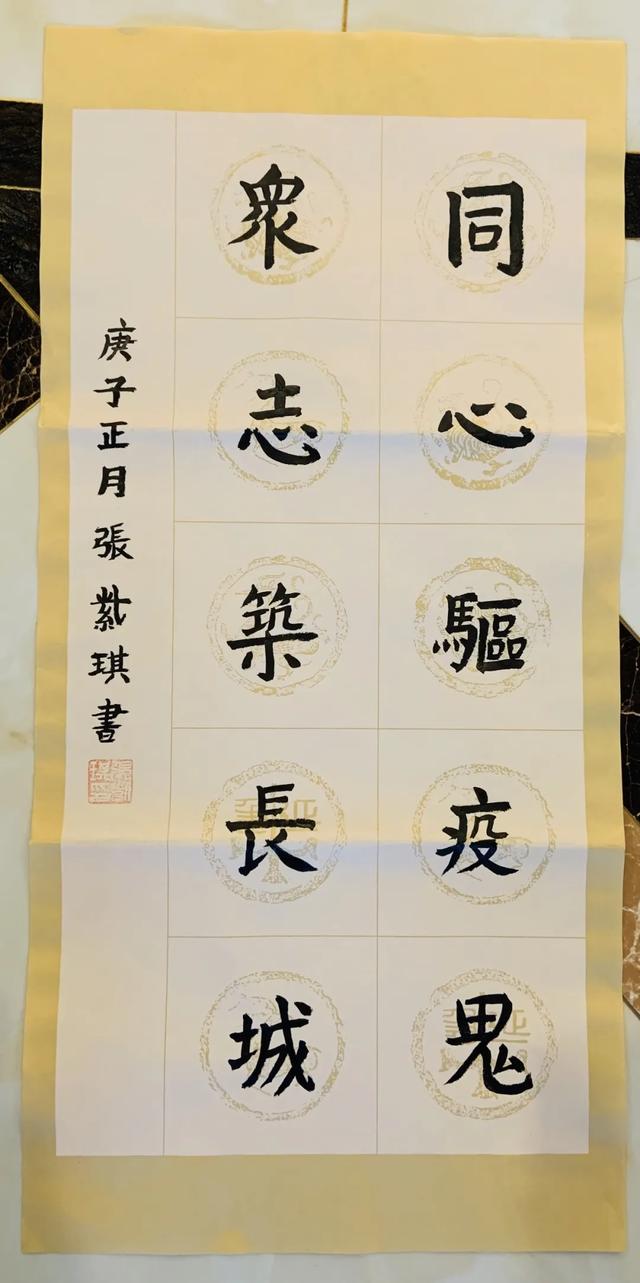 同心驅疫鬼
衆志築長城
庚子正月張紫琪書